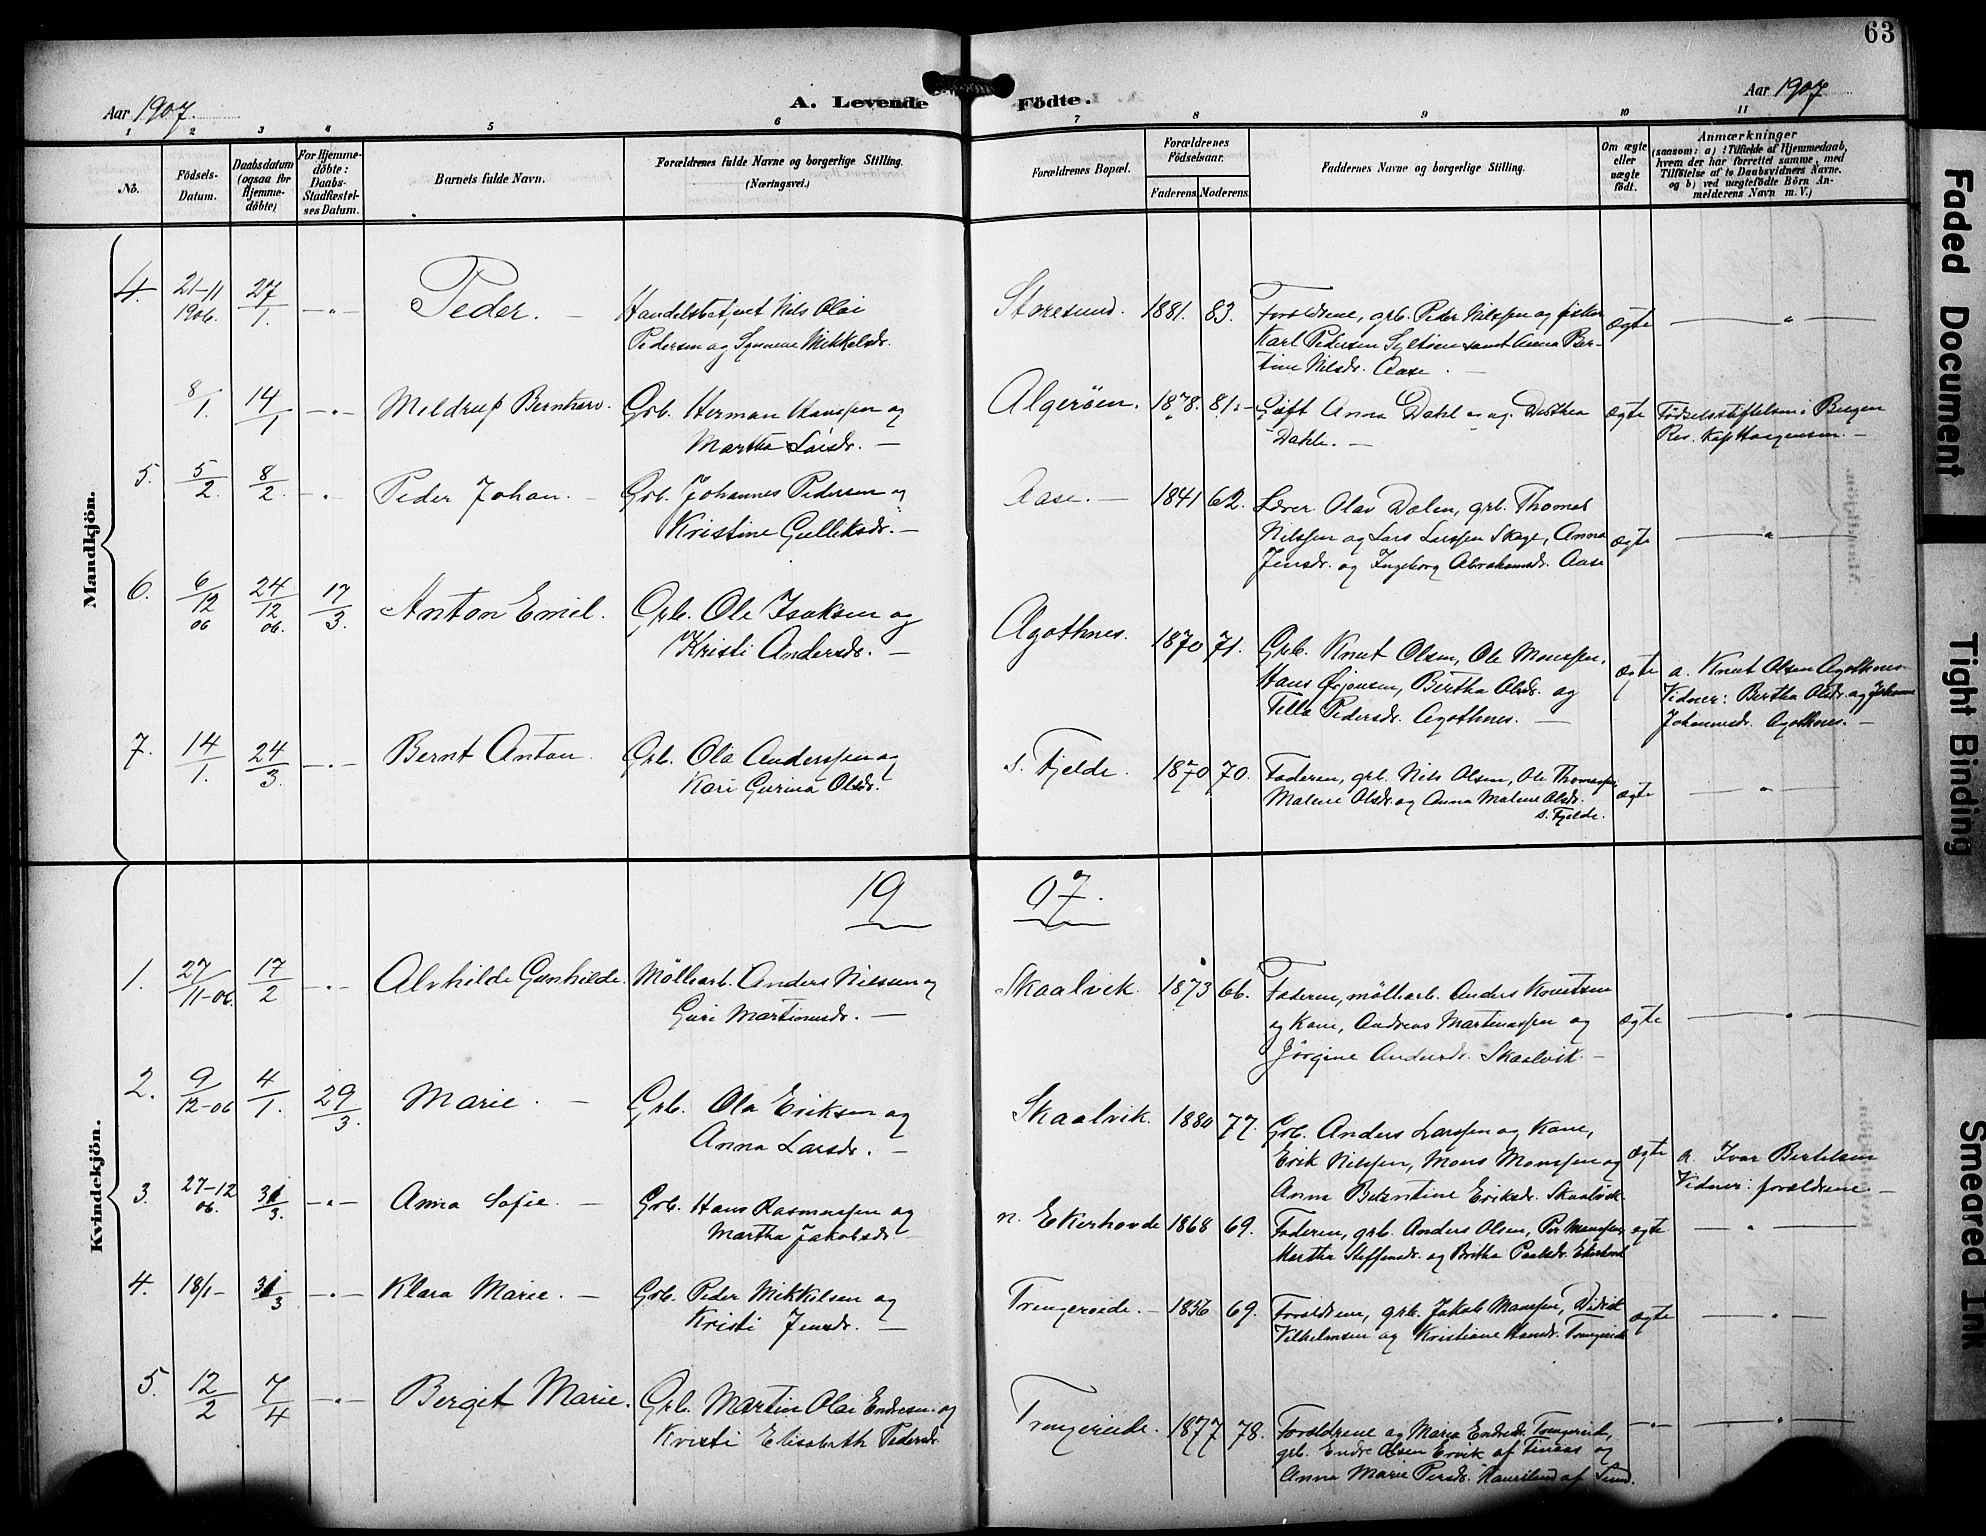 63
Aar 1907.
A. Levende Födte.
Aar 1907
1 2 3 4 5 6 7 8 9 10 11
No.
Födsels-
Datum.
Daabsdatum
(ogsaa for
Hjemme-
döbte)
For Hjemme-
döbte:
Daabs-
Stadfæstel-
ses Datum.
Barnets fulde Navn.
Forældrenes fulde Navne og borgerlige Stilling.
(Næringsvei.)
Forældrenes Bopæl.
Forældrenes
Födselsaar.
Faderens. Moderens.
Faddernes Navne og borgerlige Stilling.
Om ægte
eller
uægte
födt.
Anmærkninger
(saasom: a) i Tilfælde af Hjemmedaab,
hvem der har forrettet samme, med
Tilföielse af to Daabsvidners Navne.
og b) ved uægtefödte Börn An-
melderens Navn m. V.)
Mandkjön.
4. 21-11 1906. 27/1. -"- Peder. —
Handelsbetjent Nils Olai
Pedersen og Synneve Mikkelsdr.
Storesund. 1881. 83.
Forældrene, grb. Peder Nilssen og fisker
Karl Pedersen Syltøen samt Anna Ber-
tine Nilsdr. Aase. —
ægte — " —
8/1. 14/1 -"- Meldrup Bernhard.
Grb. Herman Hanssen og
Martha Larsdr. —
Algerøen. 1878. 81. -
Gift Anna Dahl og Dorthea
Dahl. —
ægte
Fødselsstiftelsen i Bergen
Res. Kap Haagensen. —
5. 5/2. 8/2. -"- Peder Johan. —
Grb. Johannes Pedersen og
Kristine Gulleksdr. —
Aase. — 1841 62.
Lærer Olav Dalen, grb. Thomas
Nilssen og Lars Larssen Skage, Anna
Jensdr. og Ingeborg Abrahamsdr. Aase
ægte — " —
6. 6/12 06 24/12 06. 17/3. Anton Emil.
Grb. Ole Isaksen og
Kristi Andersdr. —
Agothnes. 1870 71.
Grb. Knut Olsen, Ole Monssen,
Hans Ørjansen, Bertha Olsdr. og
Tilla Pedersdr. Agothnes. —
ægte
a. Knut Olsen Agothnes
Vidner: Bertha Olsdr. og Johanne
Johannesdr. Agothnes. —
7. 14/1. 24/3. -"- Bernt Anton.
Grb. Ola Anderssen og
Kari Gurina Olsdr.
s. Fjelde. 1870 70.
Faderen, grb. Nils Olsen, Ole Thomassen,
Malene Olsdr. og Anna Malene Olsdr.
s. Fjelde.
ægte — " —
Kvindekjön.
19 07.
1. 27/11-06. 17/2 -"- Alvhilde Gunhilde.
Møllearb. Anders Nilssen og
Guri Martinusdr. —
Skaalvik. 1873 66.
Faderen, møllearb. Anders Knutsen
og Kone, Andreas Martinussen og
Jørgine Andersdr. Skaalvik —
ægte — " —
2. 9/12-06 4/1. 29/3. Marie. —
Grb. Ola Eriksen og
Anna Larsdr. —
Skaalvik. 1880 77.
Grb. Anders Larssen og Kone,
Erik Nilssen, Mons Monssen og
Anna Berentine Eriksdr. Skaalvik
ægte
a. Ivar Bertelsen
Vidner: forældrene —
3. 27-12 06. 31/3. -"- Anna Sofie. —
Grb. Hans Rasmussen og
Martha Jakobsdr —
n. Ekerhovde 1868 69.
Faderen, grb. Anders Olsen, Per Monssen,
Martha Steffensdr. og Britha Ekerhovd
ægte — " —
4. 18/1- 31/3 -"- Klara Marie. —
Grb. Peder Mikkelsen og
Kristi Jensdr. —
Trengereide. — 1856 69.
Forældrene, grb. Jakob Monssen, Didrik
Vilhelmsen og Kristiane Hansdr. Trengereid
ægte — " —
5. 12/2 7/4 -"- Berget Marie.
Grb. Martin Olai Endresen og
Kristi Elisabeth Pedersdr.
Trengereide. 1877 78.
Forældrene og Maria Endresdr. Trengereid,
grb. Endre Olsen Ervik af Finaas og
Anna Marie Persdr. af Sund.
-"- — " —
Faded Document
Tight Binding
Smeared Ink